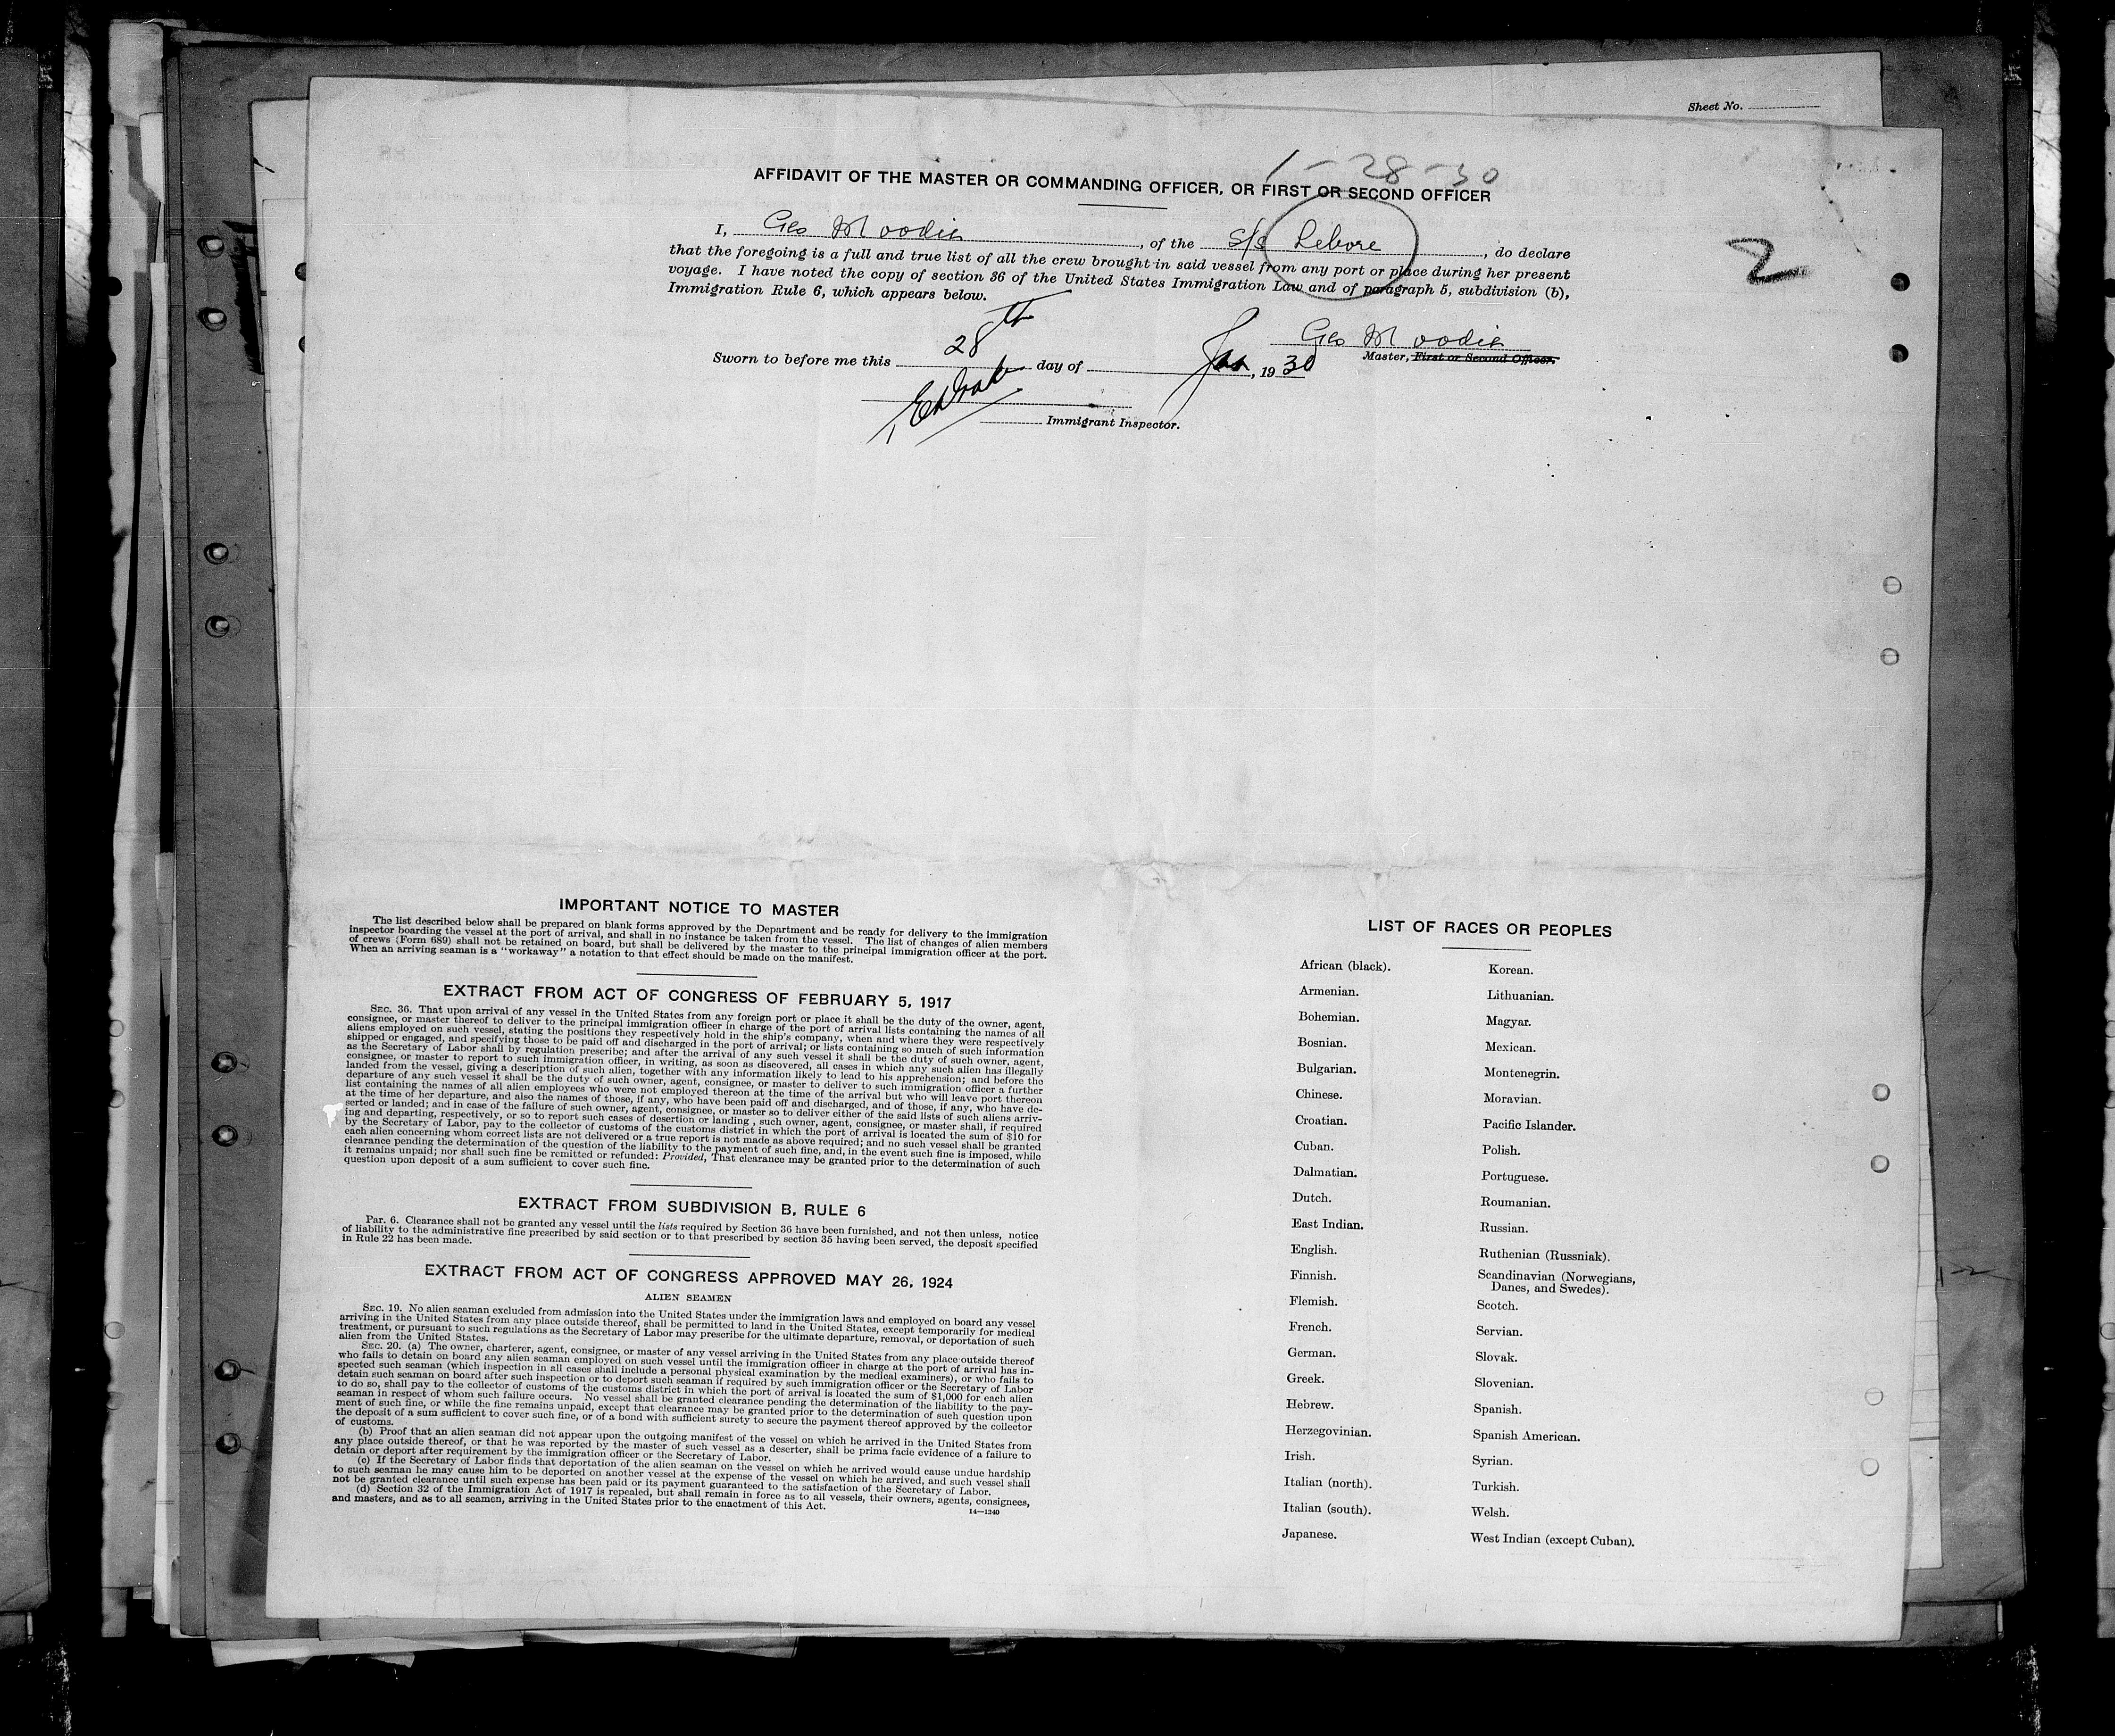 Sheet No.
1-28-30
AFFIDAVIT OF THE MASTER OR COMMANDING OFFICER, OR FIRST OR SECOND OFFICER
I, Geo Moodie, of the S/S Lebore, do declare
that the foregoing is a full and true list of all the crew brought in said vessel from any port or place during her present
voyage. I have noted the copy of section 36 of the United States Immigration Law and of paragraph 5, subdivision (b),
Immigration Rule 6, which appears below.
2
Geo Moodie
Master, First or Second Officer.
Sworn to before me this 28th day of Jan, 1930
Immigrant Inspector.
IMPORTANT NOTICE TO MASTER
The list described below shall be prepared on blank forms approved by the Department and be ready for delivery to the immigration
inspector boarding the vessel at the port of arrival, and shall in no instance be taken from the vessel. The list of changes of alien members
of crews (Form 689) shall not be retained on board, but shall be delivered by the master to the principal immigration officer at the port.
When an arriving seaman is a "workaway" a notation to that effect should be made on the manifest.
EXTRACT FROM ACT OF CONGRESS OF FEBRUARY 5, 1917
SEC. 36. That upon arrival of any vessel in the United States from any foreign port or place it shall be the duty of the owner, agent,
consignee, or master thereof to deliver to the principal immigration officer in charge of the port of arrival lists containing the names of all
aliens employed on such vessel, stating the positions they respectively hold in the ship's company, when and where they were respectively
shipped or engaged, and specifying those to be paid off and discharged in the port of arrival; or lists containing so much of such information
as the Secretary of Labor shall by regulation prescribe; and after the arrival of any such vessel it shall be the duty of such owner, agent,
consignee, or master to report to such immigration officer, in writing, as soon as discovered, all cases in which any such alien has illegally
landed from the vessel, giving a description of such alien, together with any information likely to lead to his apprehension; and before the
departure of any such vessel it shall be the duty of such owner, agent, consignee, or master to deliver to such immigration officer a further
list containing the names of all alien employees who were not employed thereon at the time of the arrival but who will leave port thereon
at the time of her departure, and also the names of those, if any, who have been paid off and discharged, and of those, if any, who have de-
serted or landed; and in case of the failure of such owner, agent, consignee, or master so to deliver either of the said lists of such aliens arriv-
ing and departing, respectively, or so to report such cases of desertion or landing , such owner, agent, consignee, or master shall, if required
by the Secretary of Labor, pay to the collector of customs of the customs district in which the port of arrival is located the sum of $10 for
each alien concerning whom correct lists are not delivered or a true report is not made as above required; and no such vessel shall be granted
clearance pending the determination of the question of the liability to the payment of such fine, and, in the event such fine is imposed, while
it remains unpaid; nor shall such fine be remitted or refunded: Provided, That clearance may be granted prior to the determination of such
question upon deposit of a sum sufficient to cover such fine.
EXTRACT FROM SUBDIVISION B, RULE 6
Par. 6. Clearance shall not be granted any vessel until the lists required by Section 36 have been furnished, and not then unless, notice
of liability to the administrative fine prescribed by said section or to that prescribed by section 35 having been served, the deposit specified
in Rule 22 has been made.
EXTRACT FROM ACT OF CONGRESS APPROVED MAY 26, 1924
ALIEN SEAMEN
SEC. 19. No alien seaman excluded from admission into the United States under the immigration laws and employed on board any vessel
arriving in the United States from any place outside thereof, shall be permitted to land in the United States, except temporarily for medical
treatment, or pursuant to such regulations as the Secretary of Labor may prescribe for the ultimate departure, removal, or deportation of such
alien from the United States.
SEC. 20. (a) The owner, charterer, agent, consignee, or master of any vessel arriving in the United States from any place outside thereof
who fails to detain on board any alien seaman employed on such vessel until the immigration officer in charge at the port of arrival has in-
spected such seaman (which inspection in all cases shall include a personal physical examination by the medical examiners), or who fails to
detain such seaman on board after such inspection or to deport such seaman if required by such immigration officer or the Secretary of Labor
to do so, shall pay to the collector of customs of the customs district in which the port of arrival is located the sum of $1,000 for each alien
seaman in respect of whom such failure occurs. No vessel shall be granted clearance pending the determination of the liability to the pay-
ment of such fine, or while the fine remains unpaid, except that clearance may be granted prior to the determination of such question upon
the deposit of a sum sufficient to cover such fine, or of a bond with sufficient surety to secure the payment thereof approved by the collector
of customs.
(b) Proof that an alien seaman did not appear upon the outgoing manifest of the vessel on which he arrived in the United States from
any place outside thereof, or that he was reported by the master of such vessel as a deserter, shall be prima facie evidence of a failure to
detain or deport after requirement by the immigration officer or the Secretary of Labor.
(c) If the Secretary of Labor finds that deportation of the alien seaman on the vessel on which he arrived would cause undue hardship
to such seaman he may cause him to be deported on another vessel at the expense of the vessel on which he arrived, and such vessel shall
not be granted clearance until such expense has been paid or its payment guaranteed to the satisfaction of the Secretary of Labor.
(d) Section 32 of the Immigration Act of 1917 is repealed, but shall remain in force as to all vessels, their owners, agents, consignees,
and masters, and as to all seamen, arriving in the United States prior to the enactment of this Act.
14—1240
LIST OF RACES OR PEOPLES
African (black).
Armenian.
Bohemian.
Bosnian.
Bulgarian.
Chinese.
Croatian.
Cuban.
Dalmatian.
Dutch.
East Indian.
English.
Finnish.
Flemish.
French.
German.
Greek.
Hebrew.
Herzegovinian.
Irish.
Italian (north).
Italian (south).
Japanese.
Korean.
Lithuanian.
Magyar.
Mexican.
Montenegrin.
Moravian.
Pacific Islander.
Polish.
Portuguese.
Roumanian.
Russian.
Ruthenian (Russniak).
Scandinavian (Norwegians,
Danes, and Swedes).
Scotch.
Servian.
Slovak.
Slovenian.
Spanish.
Spanish American.
Syrian.
Turkish.
Welsh.
West Indian (except Cuban).